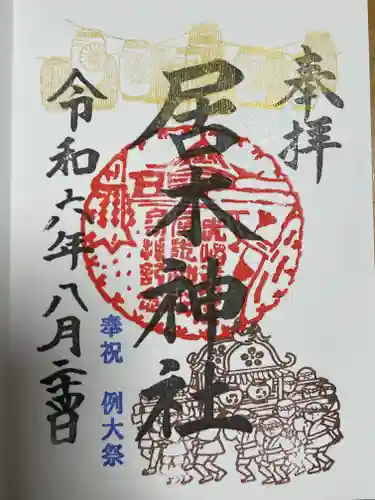 奉拝
居木神社
令和六年八月二十四日
奉祝 例大祭